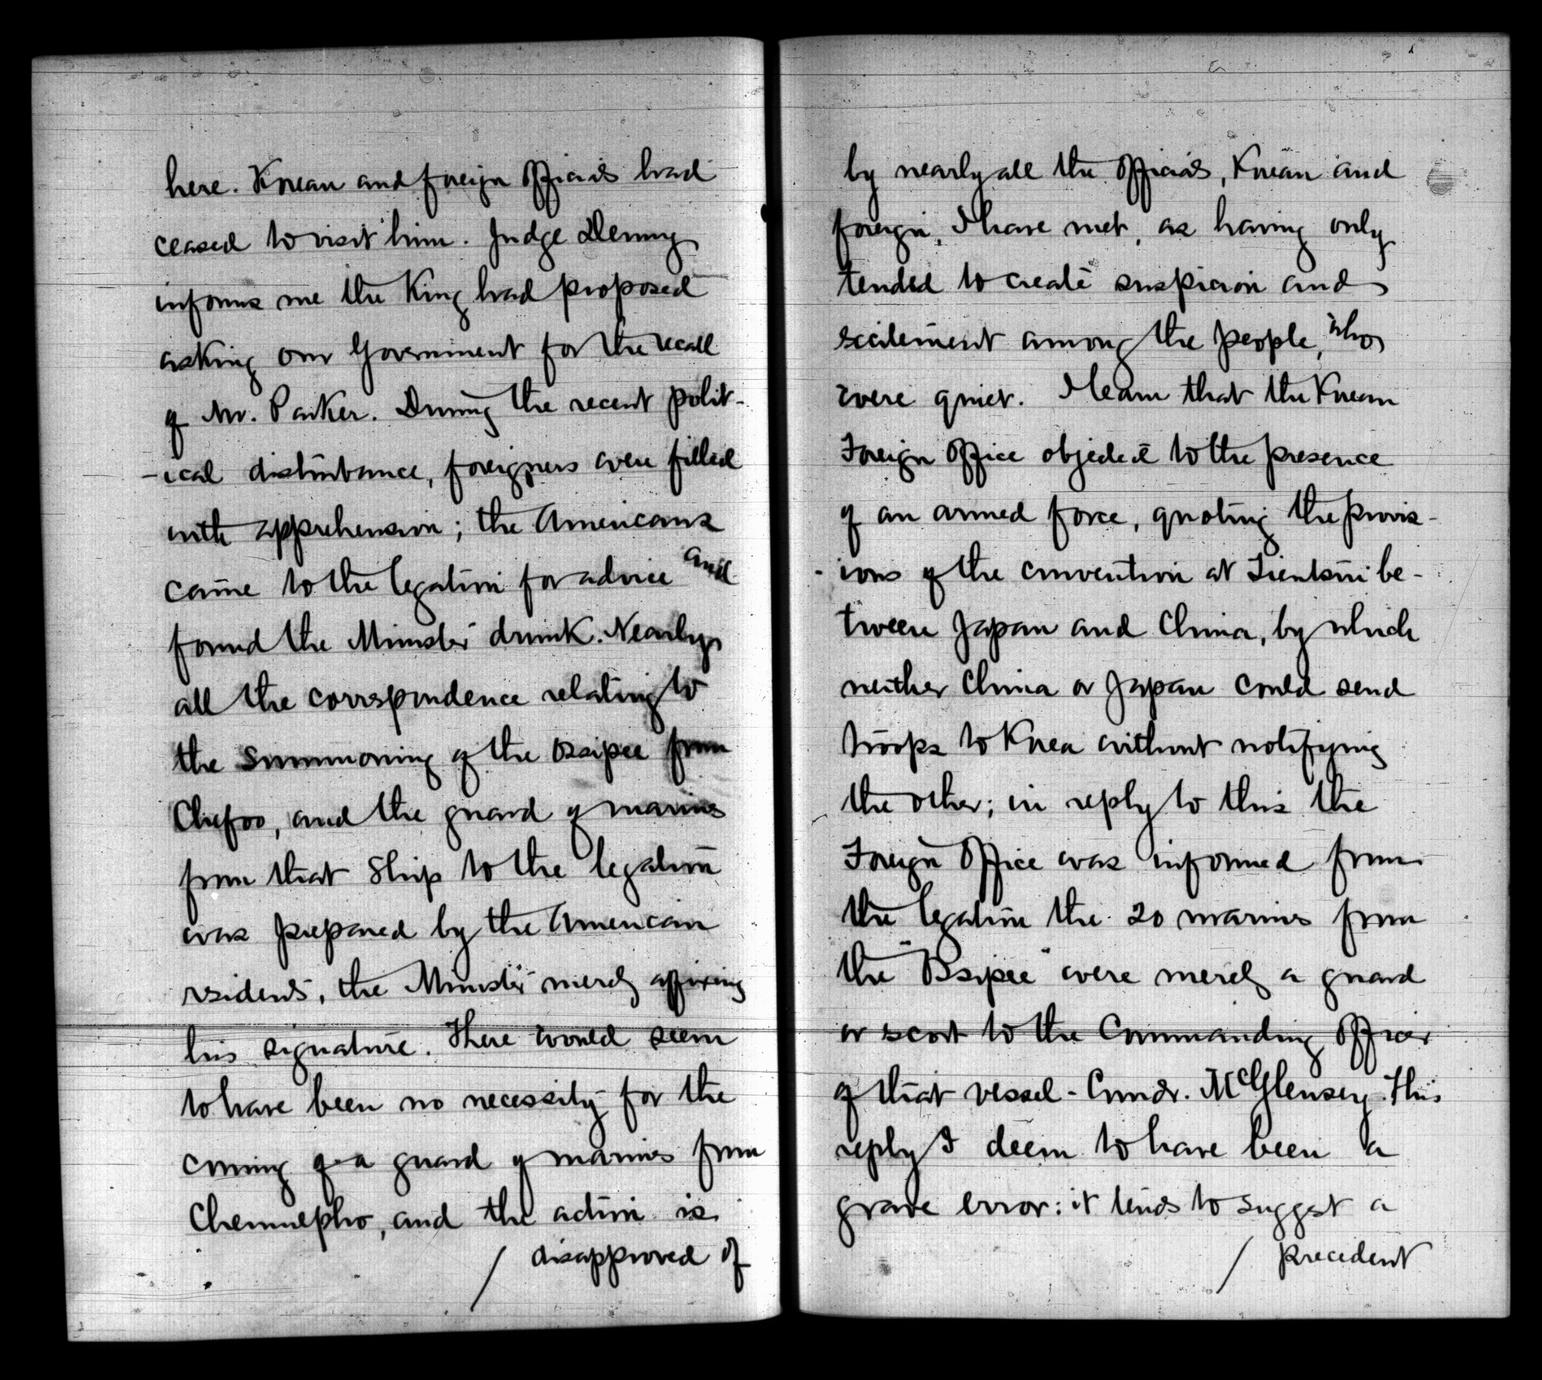 here. Korean and foreign officials had
ceased to visit him. Judge Denny
informs me the King had proposed
asking our Government for the recall
of Mr. Parker. During the recent polit-
-ical disturbance, foreigners were filled
with apprehension; the Americans
came to the legation for advice and
found the Minister drunk. Nearly
all the correspondence relating to
the summoning of the Ossipee from
Chefoo, and the guard of marines
from that ship to the legation
was prepared by the American
residents, the Minister merely affixing
his signature. There would seem
to have been no necessity for the
coming of a guard of marines from
Chemulpho, and the action is
/ disapproved of
by nearly all the officials, Korean and
foreign, I have met, as having only
tended to create suspicion and
excitement among the people, who
were quiet. I learn that the Korean
Foreign Office objected to the presence
of an armed force, quoting the provis-
-ions of the convention at Tientsin be-
tween Japan and China, by which
neither China or Japan could send
troops to Korea without notifying
the other; in reply to this the
Foreign Office was informed from
the legation the 20 marines from
the "Ossipee" were merely a guard
or escort to the Commanding Officer
of that vessel - Comdr. McGlensey. This
reply I deem to have been a
grave error: it tends to suggest a
/ precedent